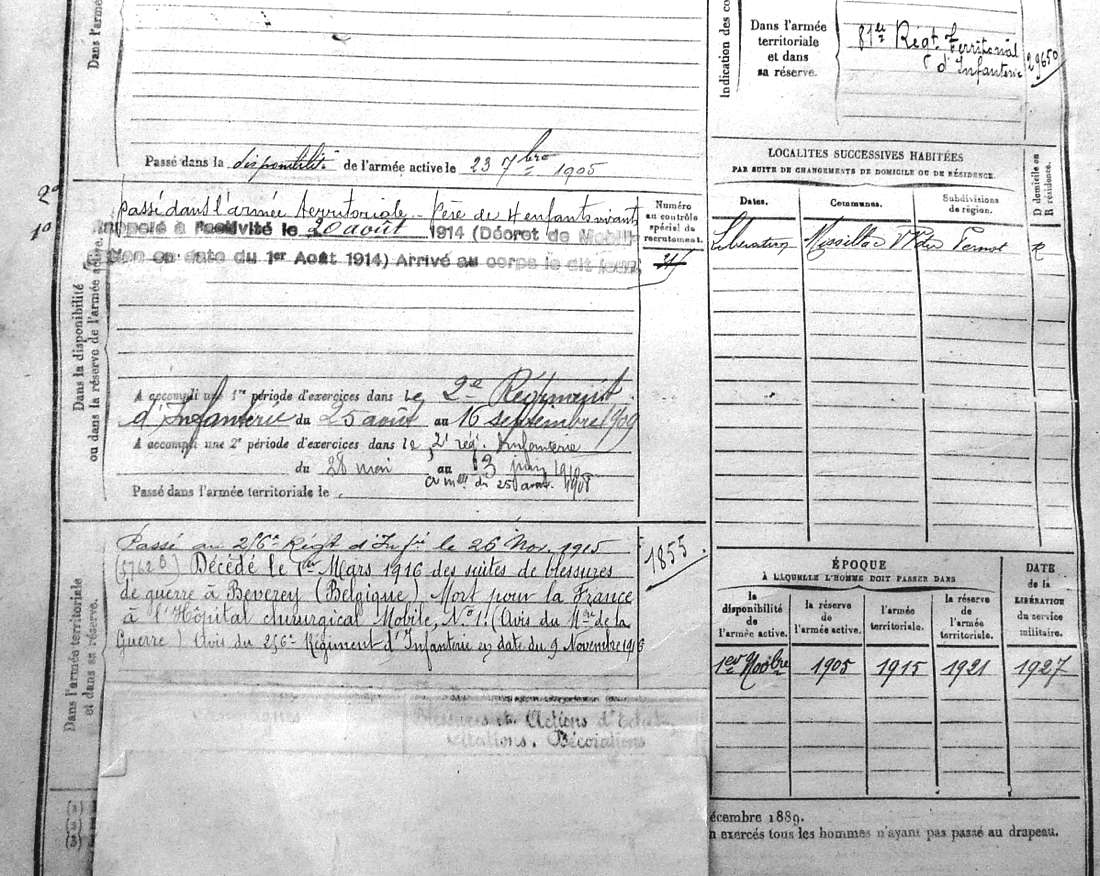 Dans l'armé
Passé dans la disponibilité de l'armée active le 23 7bre 1905
2°
1°
Dans la disponibilité
ou dans la réserve de l'armée active.
passé dans l'armée territoriale _ père de 4 enfants vivants
Rappelé à l'activité le 20 août 1914 (Décret de Mobili-
en date du 1er Août 1914) Arrivé au corps le dit jour
Numéro
au contrôle
spécial du
recrutement.
A accompli une 1re période d'exercices dans le 2e Régiment
d'Infanterie du 25 août au 16 septembre 1909
A accompli une 2e période d'exercices dans le 2e rég. Infanterie
du 28 mai au 13 juin
du 25 1908
Passé dans l'armée territoriale le
Dans l'armée territoriale
et dans sa réserve.
Passé au 256e Régt d'Infie le 26 Nov. 1915
Décédé le 1er Mars 1916 des suites de blessures
de guerre à Beverey (Belgique) Mort pour la France
à l'Hôpital chirurgical Mobile, No 1! (Avis du Mre de la
Guerre) Avis du 256e Régiment d'Infanterie en date du 9 Novembre 1916
1855.
Campagnes
Blessures etc. Actions d'Eclat.
Citations. Décorations
(1)
(2)
(3)
Indication des co
Dans l'armée
territoriale
et dans
sa réserve.
81e Régt Territorial
d'Infanterie
29650
LOCALITES SUCCESSIVES HABITÉES
PAR SUITE DE CHANGEMENTS DE DOMICILE OU DE RÉSIDENCE.
D domicile ou
R résidence.
Dates.
Communes.
Subdivisions
de région.
R
ÉPOQUE
À LAQUELLE L'HOMME DOIT PASSER DANS
DATE
de la
LIBÉRATION
du service
militaire.
la
disponibilité
de
l'armée active.
la réserve
de
l'armée active.
l'armée
territoriale.
la réserve
de
l'armée
territoriale.
1er Novbre 1905 1915 1921 1927
écembre 1889.
n exercés tous les hommes n'ayant pas passé au drapeau.